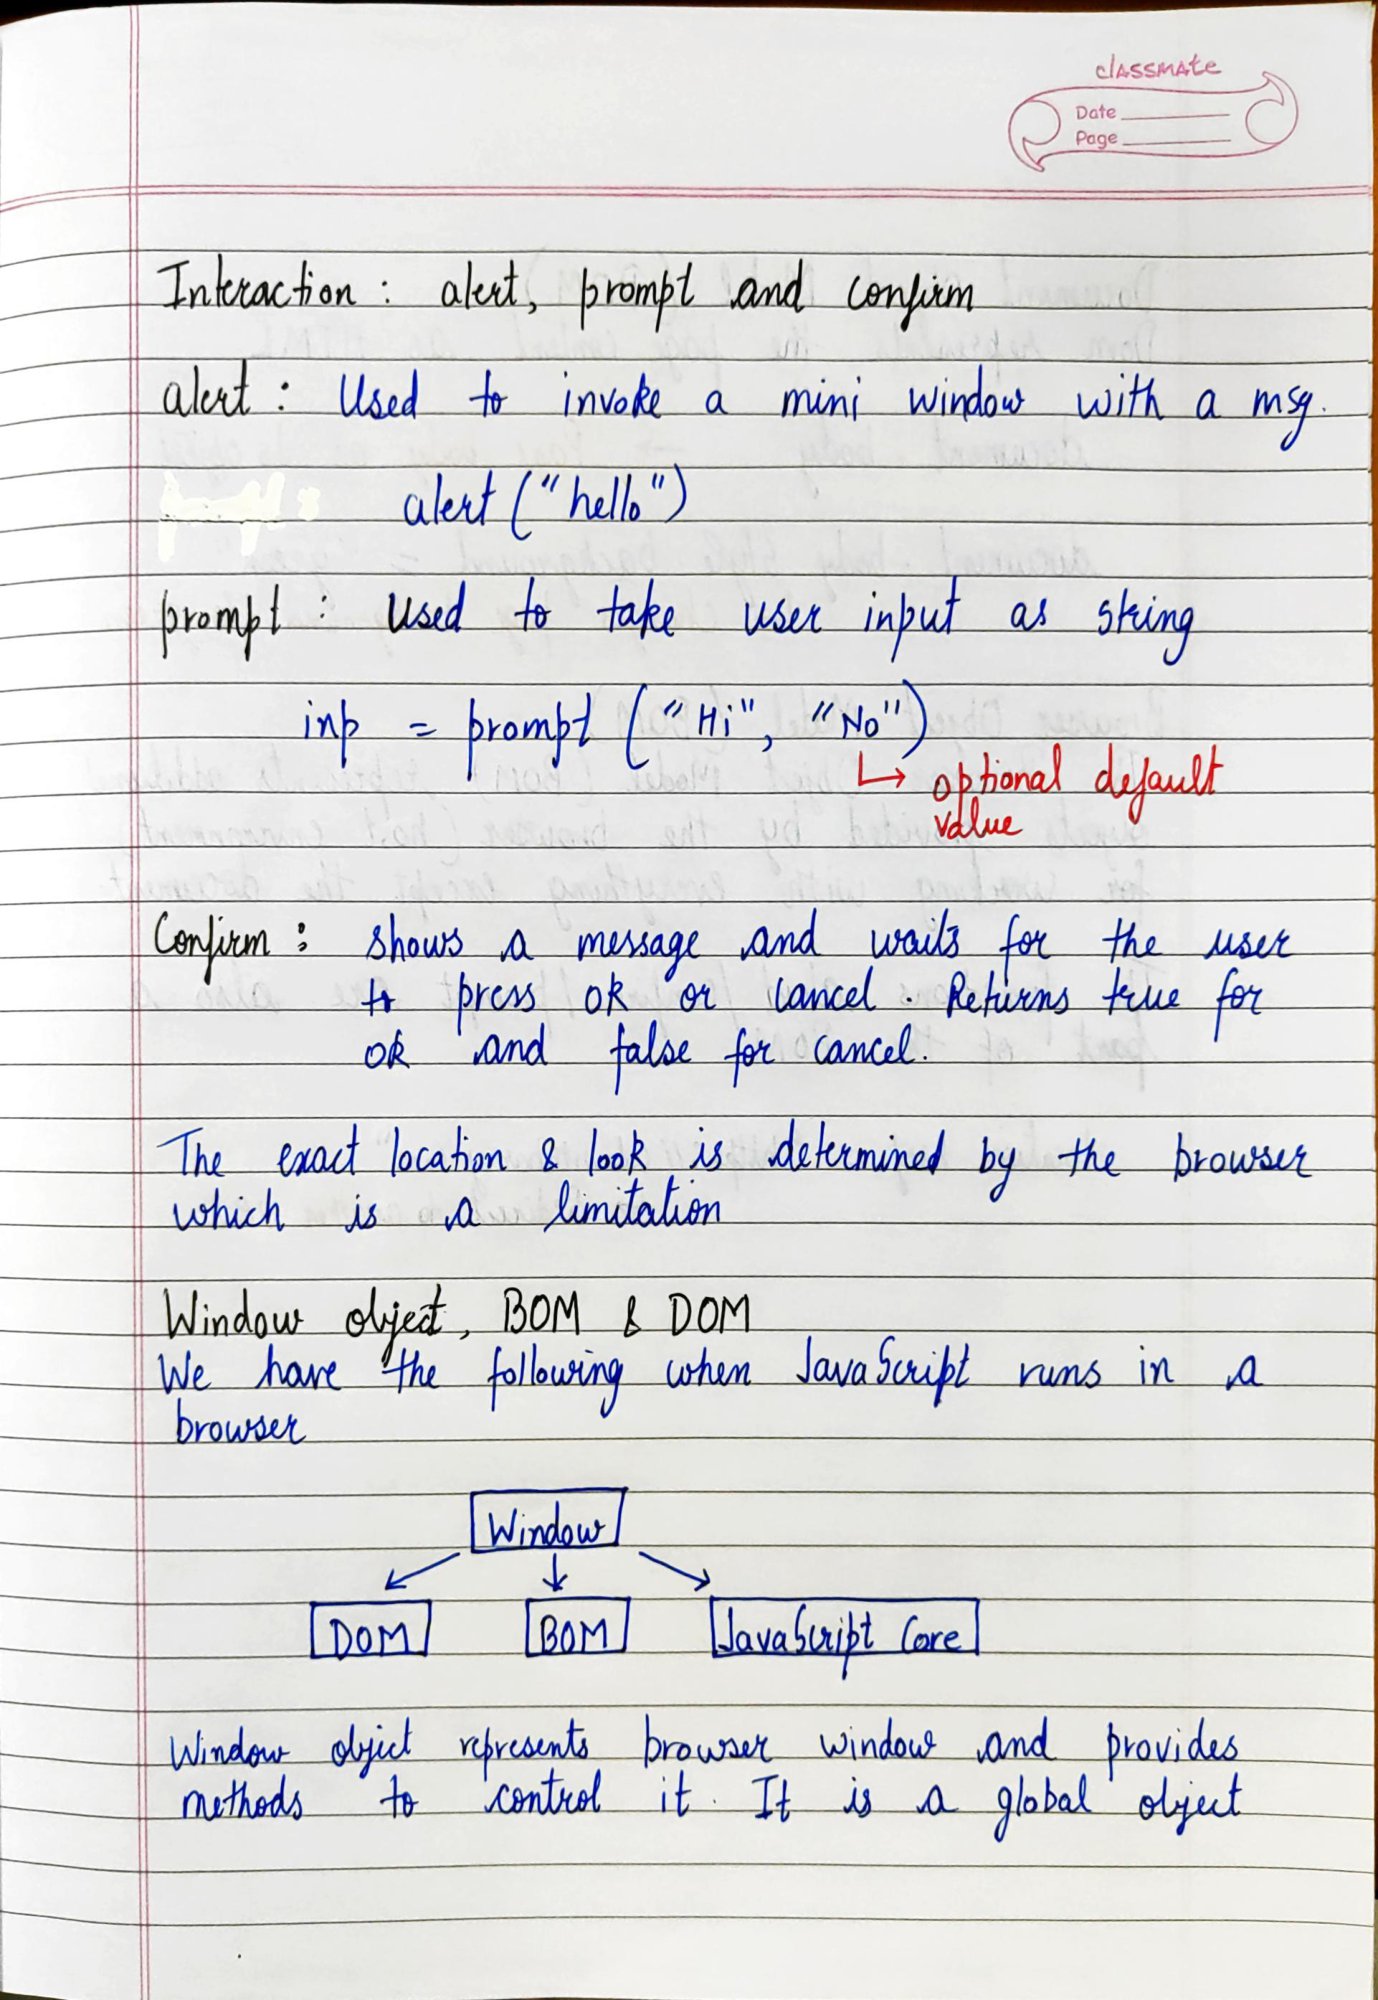 classmate
Date
Page
Interaction : alert, prompt and confirm
alert : Used to invoke a mini window with a msg.
alert ("hello")
prompt : Used to take user input as string
inp = prompt ("Hi", "No")
optional default
value
Confirm : shows a message and waits for the user
to press ok or cancel. Returns true for
ok and false for cancel.
The exact location & look is determined by the browser
which is a limitation
Window object, BOM & DOM
We have the following when JavaScript runs in a
browser
Window
DOM BOM JavaScript Core
Window object represents browser window and provides
methods to control it. It is a global object